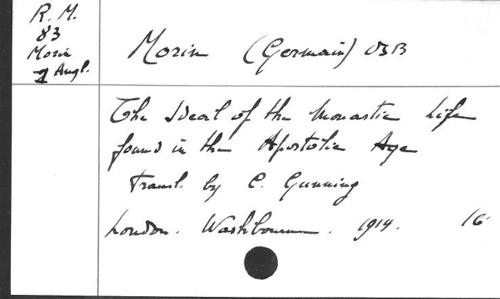 R. M.
83
Morin
1 Angl.
Morin (Germain) OSB
The Ideal of the Monastic Life
found in the Apostolic Age
Transl. by C. Gunning
London. Washbourne. 1914. 16